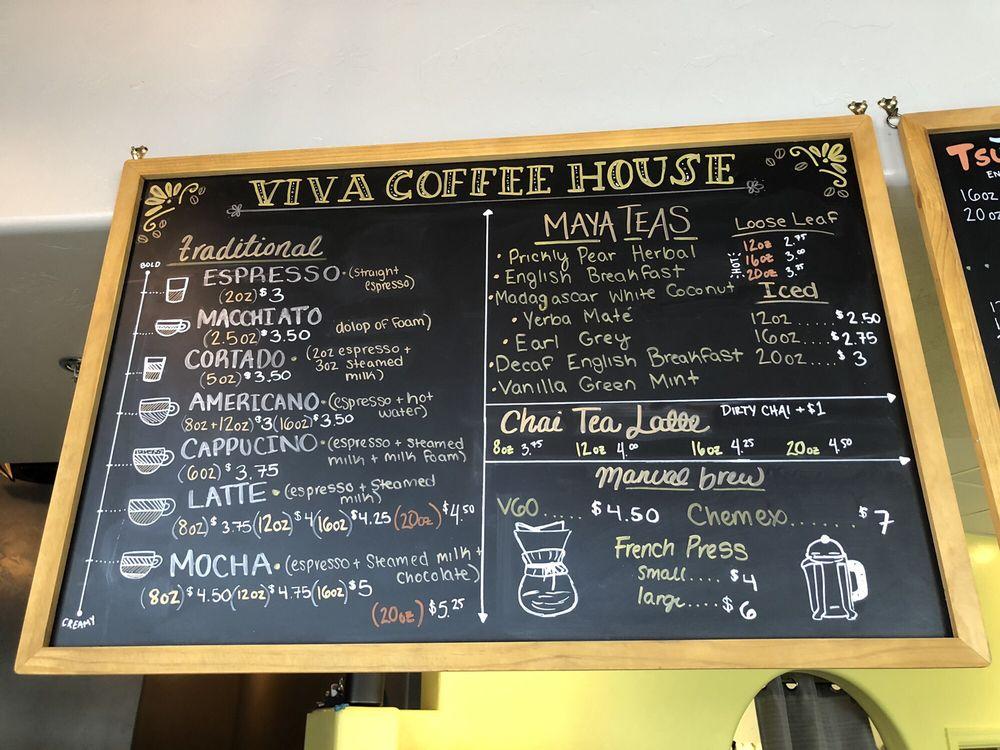 VIVA COFFEE HOUSE
Traditional
BOLD
ESPRESSO • (straight
espresso)
(2oz) $3
MACCHIATO
(2.5oz) $3.50
dolop of foam)
CORTADO • (2oz espresso +
3oz steamed
milk)
(5oz) $3.50
AMERICANO • (espresso + hot
water)
(8oz+12oz) $3 (16oz) $3.50
CAPPUCINO • (espresso + steamed
milk + milk foam)
(6oz) $3.75
LATTE • (espresso + steamed
milk)
(8oz) $3.75 (12oz) $4 (16oz) $4.25 (20oz) $4.50
MOCHA • (espresso + Steamed milk +
chocolate)
(8oz) $4.50 (12oz) $4.75 (16oz) $5
(20oz) $5.25
CREAMY
MAYA TEAS
• Prickly Pear Herbal
• English Breakfast
• Madagascar White Coconut
• Yerba Maté
• Earl Grey
• Decaf English Breakfast
• Vanilla Green Mint
Loose Leaf
HOT:
12oz 2.75
16oz 3.00
20oz 3.75
Iced
12oz .... $2.50
16oz .... $2.75
20oz .... $3
Chai Tea Latte
DIRTY CHAI + $1
8oz 3.75 12oz 4.00 16oz 4.25 20oz 4.50
Manual brew
V60 ..... $4.50
Chemex ...... $7
French Press
small .... $4
large .... $6
16oz
20oz